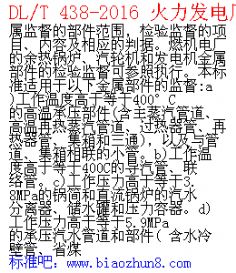 DL/T 438-2016 火力发电厂
属监督的部件范围，检验监督的项
目、内容及相应的判据。燃机电厂
的余热锅炉、汽轮机和发电机金属
部件的检验监督可参照执行。本标
准适用于以下金属部件的监督:a
)工作温度高于等于400°C
的高温承压部件(含主蒸汽管道、
高温再热蒸汽管道、过热器管、再
热器管、集箱和三通)，以及与管
道、集箱相联的小管。b)工作温
度高于等于400C的导汽管、联
络管。c)工作压力高于等于3.
8MPa的锅筒和直流锅炉的汽水
分离器、储水罐和压力容器。d)
工作压力高于等于5.9MPa
的承压汽水管道和部件( 含水冷
壁管、省煤
标准吧．www.biaozhun8.com